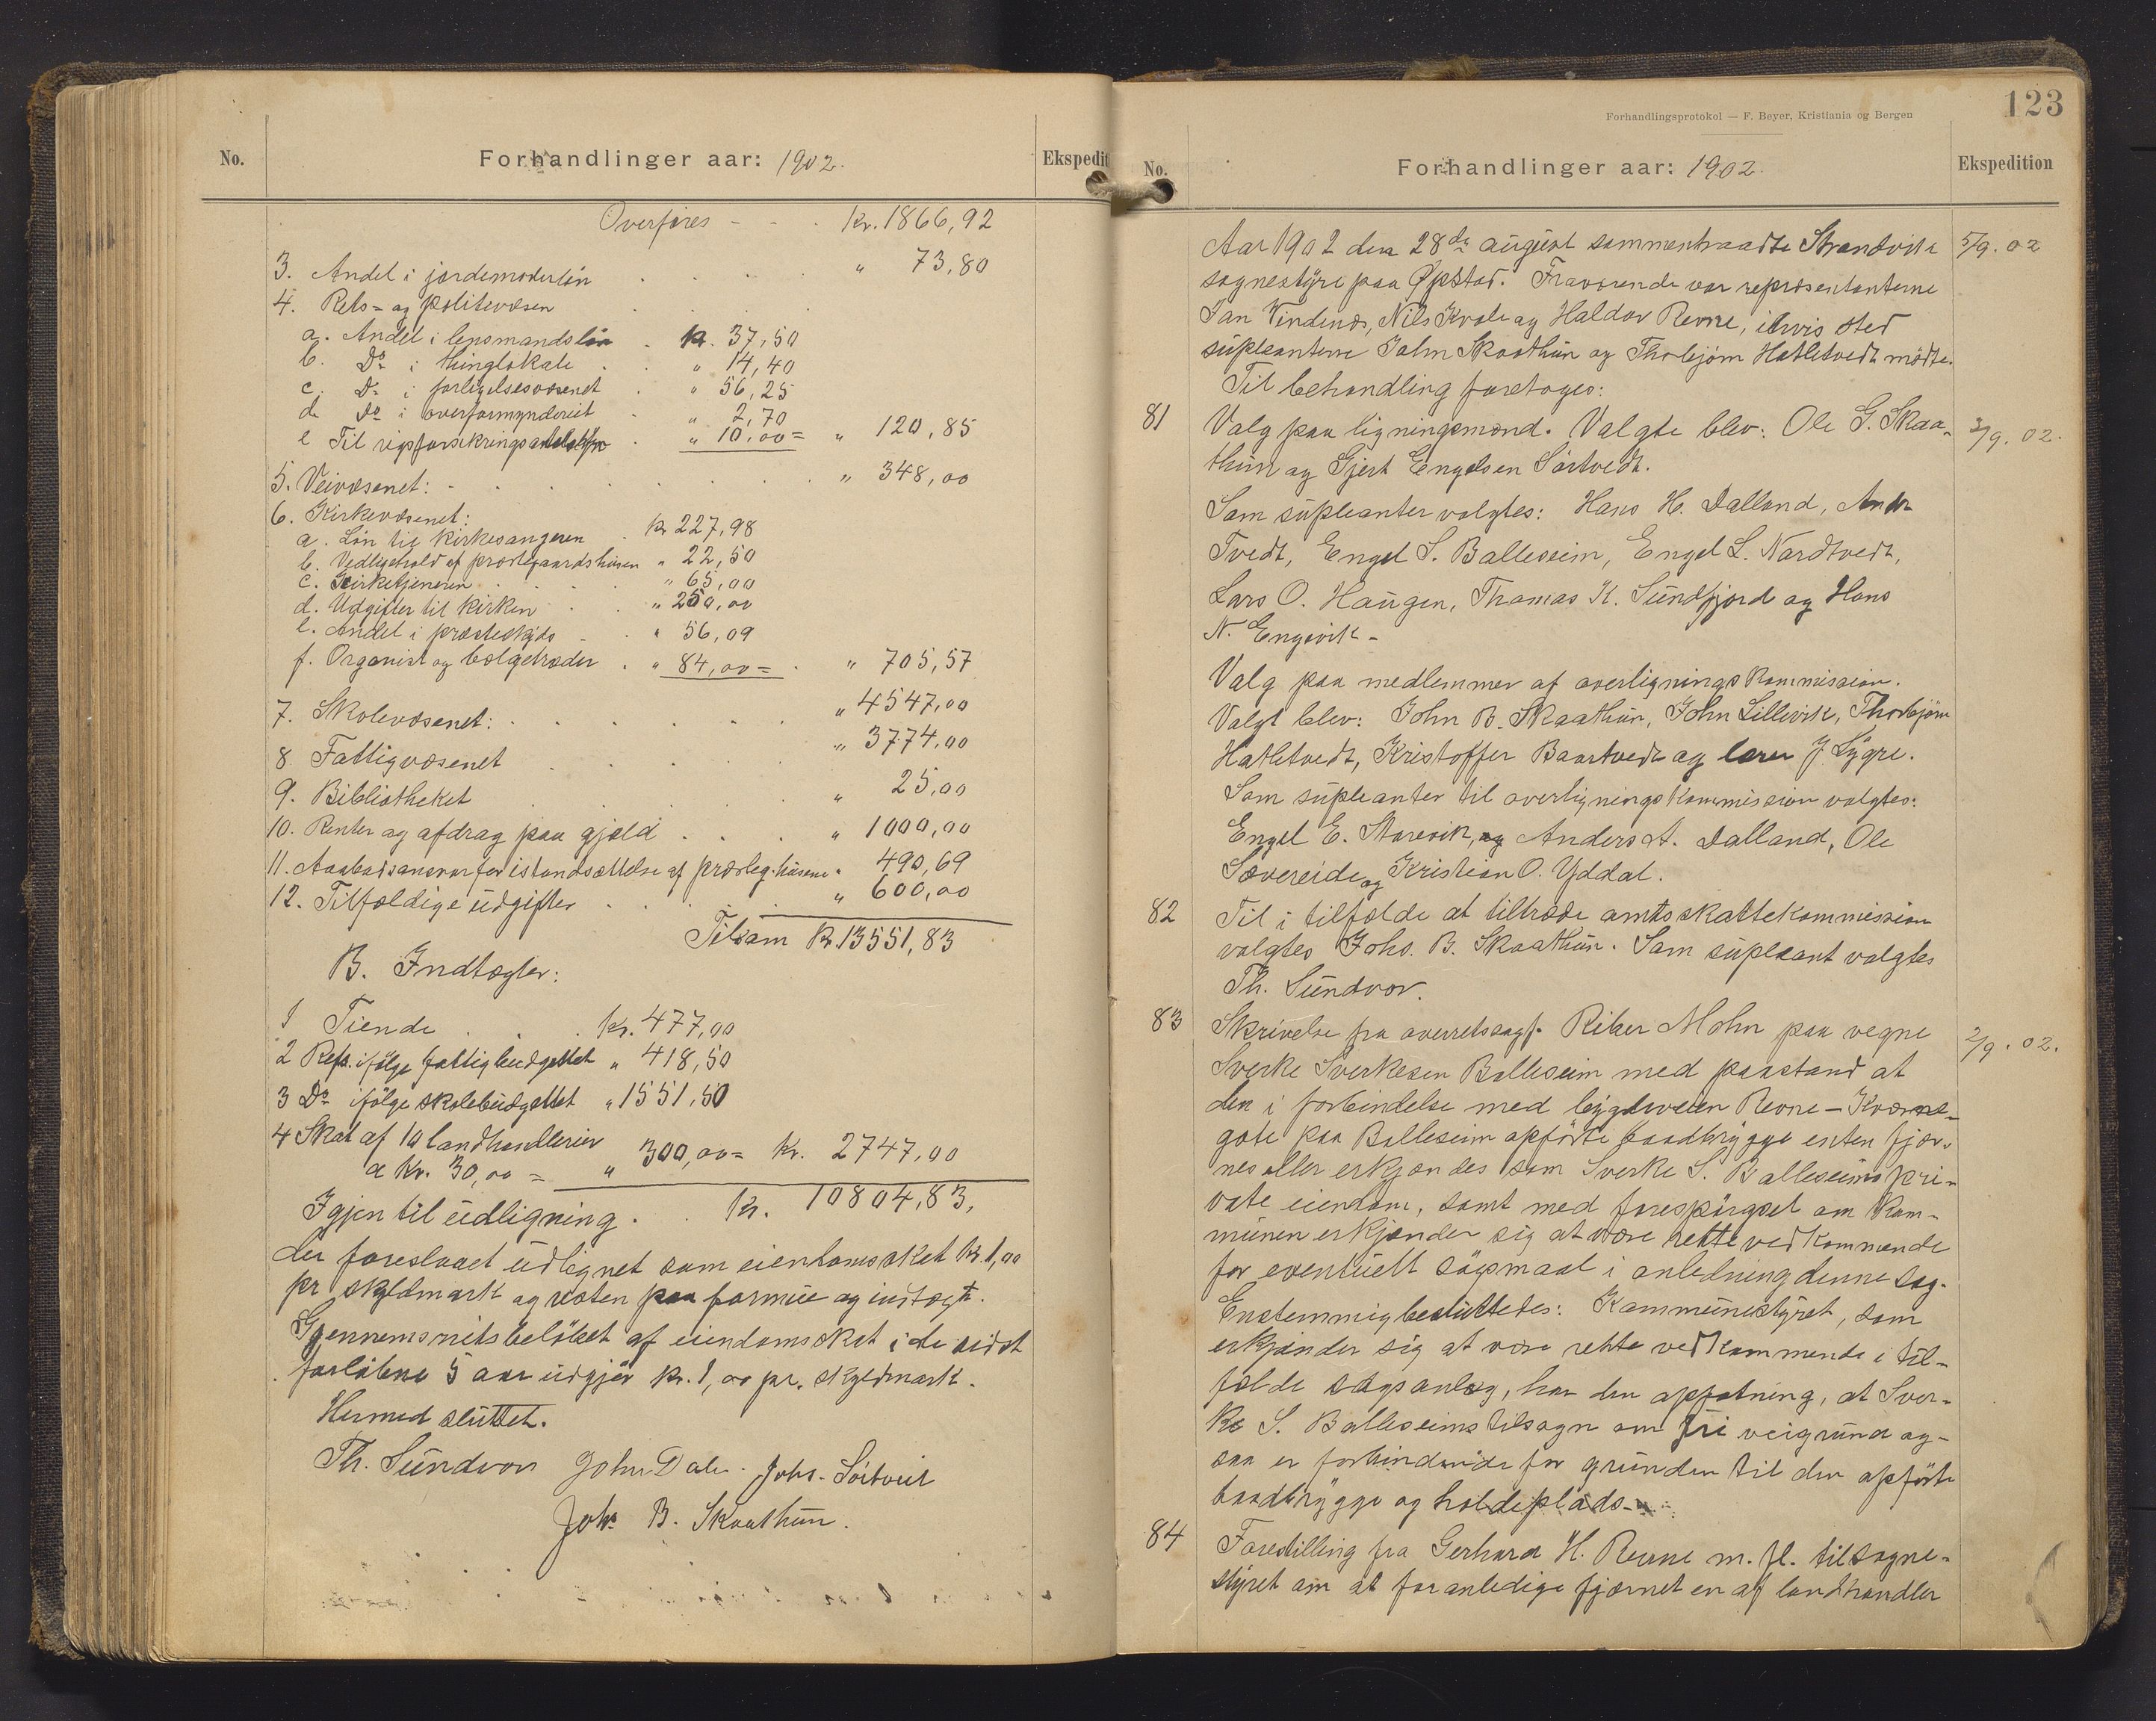 No.
Forhandlinger aar: 1902.
Ekspedit
Overføres - - . Kr. 1866,92
3. Andel i jordemoderløn . . . . " 73,80
4. Rets- og politivæsen
a. Andel i lensmandsløn . kr. 37,50
b. Do i thinglokale . . " 14,40
c. Do i forligelsesvæsenet . " 56,25
d. Do i overformynderiet . " 2,70
e Til rigsforsikrings . " 10,00 = " 120,85
5. Veivæsenet: - . . . . . . " 348,00
6. Kirkevæsenet:
a. Løn til kirkesangeren . kr 227,98
b. Vedligehold af præstegaardshusen " 22,50
c. Kirketjeneren . . . " 65,00
d. Udgifter til kirken . . " 250,00
e. Andel i præsteskyds - . " 56,09
f. Organist og bælgetræder . " 84,00 = . " 705,57
7. Skolevæsenet: . . . . . " 4547,00
8 Fattigvæsenet . . . . . " 3774,00
9. Bibliotheket . . . . " 25,00
10. Renter og afdrag paa gjæld . . . " 1000,00
11. Aabodsansvar for istandsættelse af præsteg. husene " 490,69
12. Tilfældige udgifter . . . . " 600,00
Tilsam Kr. 13551,83
B. Indtægter:
1 Tiende . . . Kr. 477,00
2 Refs. ifølge fattigbudgettet " 418,50
3 Do ifølge skolebudgettet " 1551,50
4 Skat af 10 landhandlerier
a Kr. 30,00 = " 300,00 = Kr. 2747,00
Igjen til udligning . . Kr. 10804,83.
der foreslaaet udlignet som eiendomsskat kr. 1,00
pr skyldmark og resten paa formue og indtægt.
Gjennemsnitsbeløbet af eiendomsskat i de sidst
forløbne 5 aar udgjør kr. 1,00 pr. skyldmark.
Hermed sluttet.
Th. Sundvor John Dale. Johs. Søitveit
Johs B. Skaathun.
123
Forhandlingsprotokol — F. Beyer, Kristiania og Bergen
No.
Forhandlinger aar: 1902.
Ekspedition
Aar 1902 den 28de august sammentraadte Strandvik 5/9. 02
sognestyre paa Øpstad. Fraværende var repræsentanterne
Jan Vindenes, Nils Kvale og Haldor Revne, i hvis sted
supleanterne John Skaathun og Thorbjørn Hatletvedt mødte.
Til behandling foretoges:
81 Valg paa ligningsmænd. Valgte blev: Ole G. Skaa- 2/9. 02.
thun og Gjert Engelsen Sørtvedt.
Som supleanter valgtes: Hans H. Dalland,
Tvedt, Engel S. Balleseim, Engel L. Nordtvedt,
Lars O. Haugen, Thomas K. Sundfjord og Hans
N. Engevik -
Valg paa medlemmer af overligningskommission.
Valgt blev: John B. Skaathun, John Lillevik, Thorbjørn
Hatletvedt, Kristoffer Baartvedt og lærer J Lygre.
Som supleanter til overligningskommission valgtes:
Engel E. Storevik, og Anders A. Dalland, Ole
Sævereide og Kristian O. Yddal.
82 Til i tilfælde at tiltræde amtsskattekommission
valgtes Johs. B. Skaathun. Som supleant valgtes
Th. Sundvor.
83 Skrivelse fra overretssagf. Riber Mohn paa vegne 2/9. 02.
Sverke Sverkesen Balleseim med paastand at
den i forbindelse med bygdeveien Revne - Kværne-
gote paa Balleseim opførte baadbrygge enten fjær-
nes eller erkjendes som Sverke S. Balleseims pri-
vate eiendom, samt med forespørgsel om kom-
munen erkjender sig at være rette vedkommende
for eventuelt søgsmaal i anledning denne sag.
Enstemmig besluttedes: Kommunestyret, som
erkjender sig at være rette vedkommende i til-
fælde sagsanlæg, har den opfatning, at Sver-
ke S. Balleseims tilsagn om fri veigrund og-
saa er forbindende for grunden til den opførte
baadbrygge og holdeplads.
84 Forestilling fra Gerhard H. Revne m. fl. til sogne-
styret om at foranledige fjærnet en af landhandler